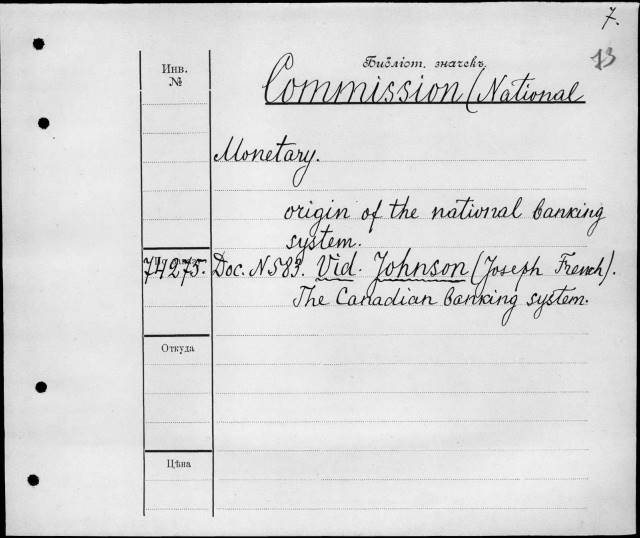 7.
73
Инв.
№
Библіот. значекъ.
Commission (National
Monetary.
origin of the national banking
system.
74275. Doc. N 583. Vid. Johnson (Joseph French).
The Canadian banking system.
Откуда
Цѣна